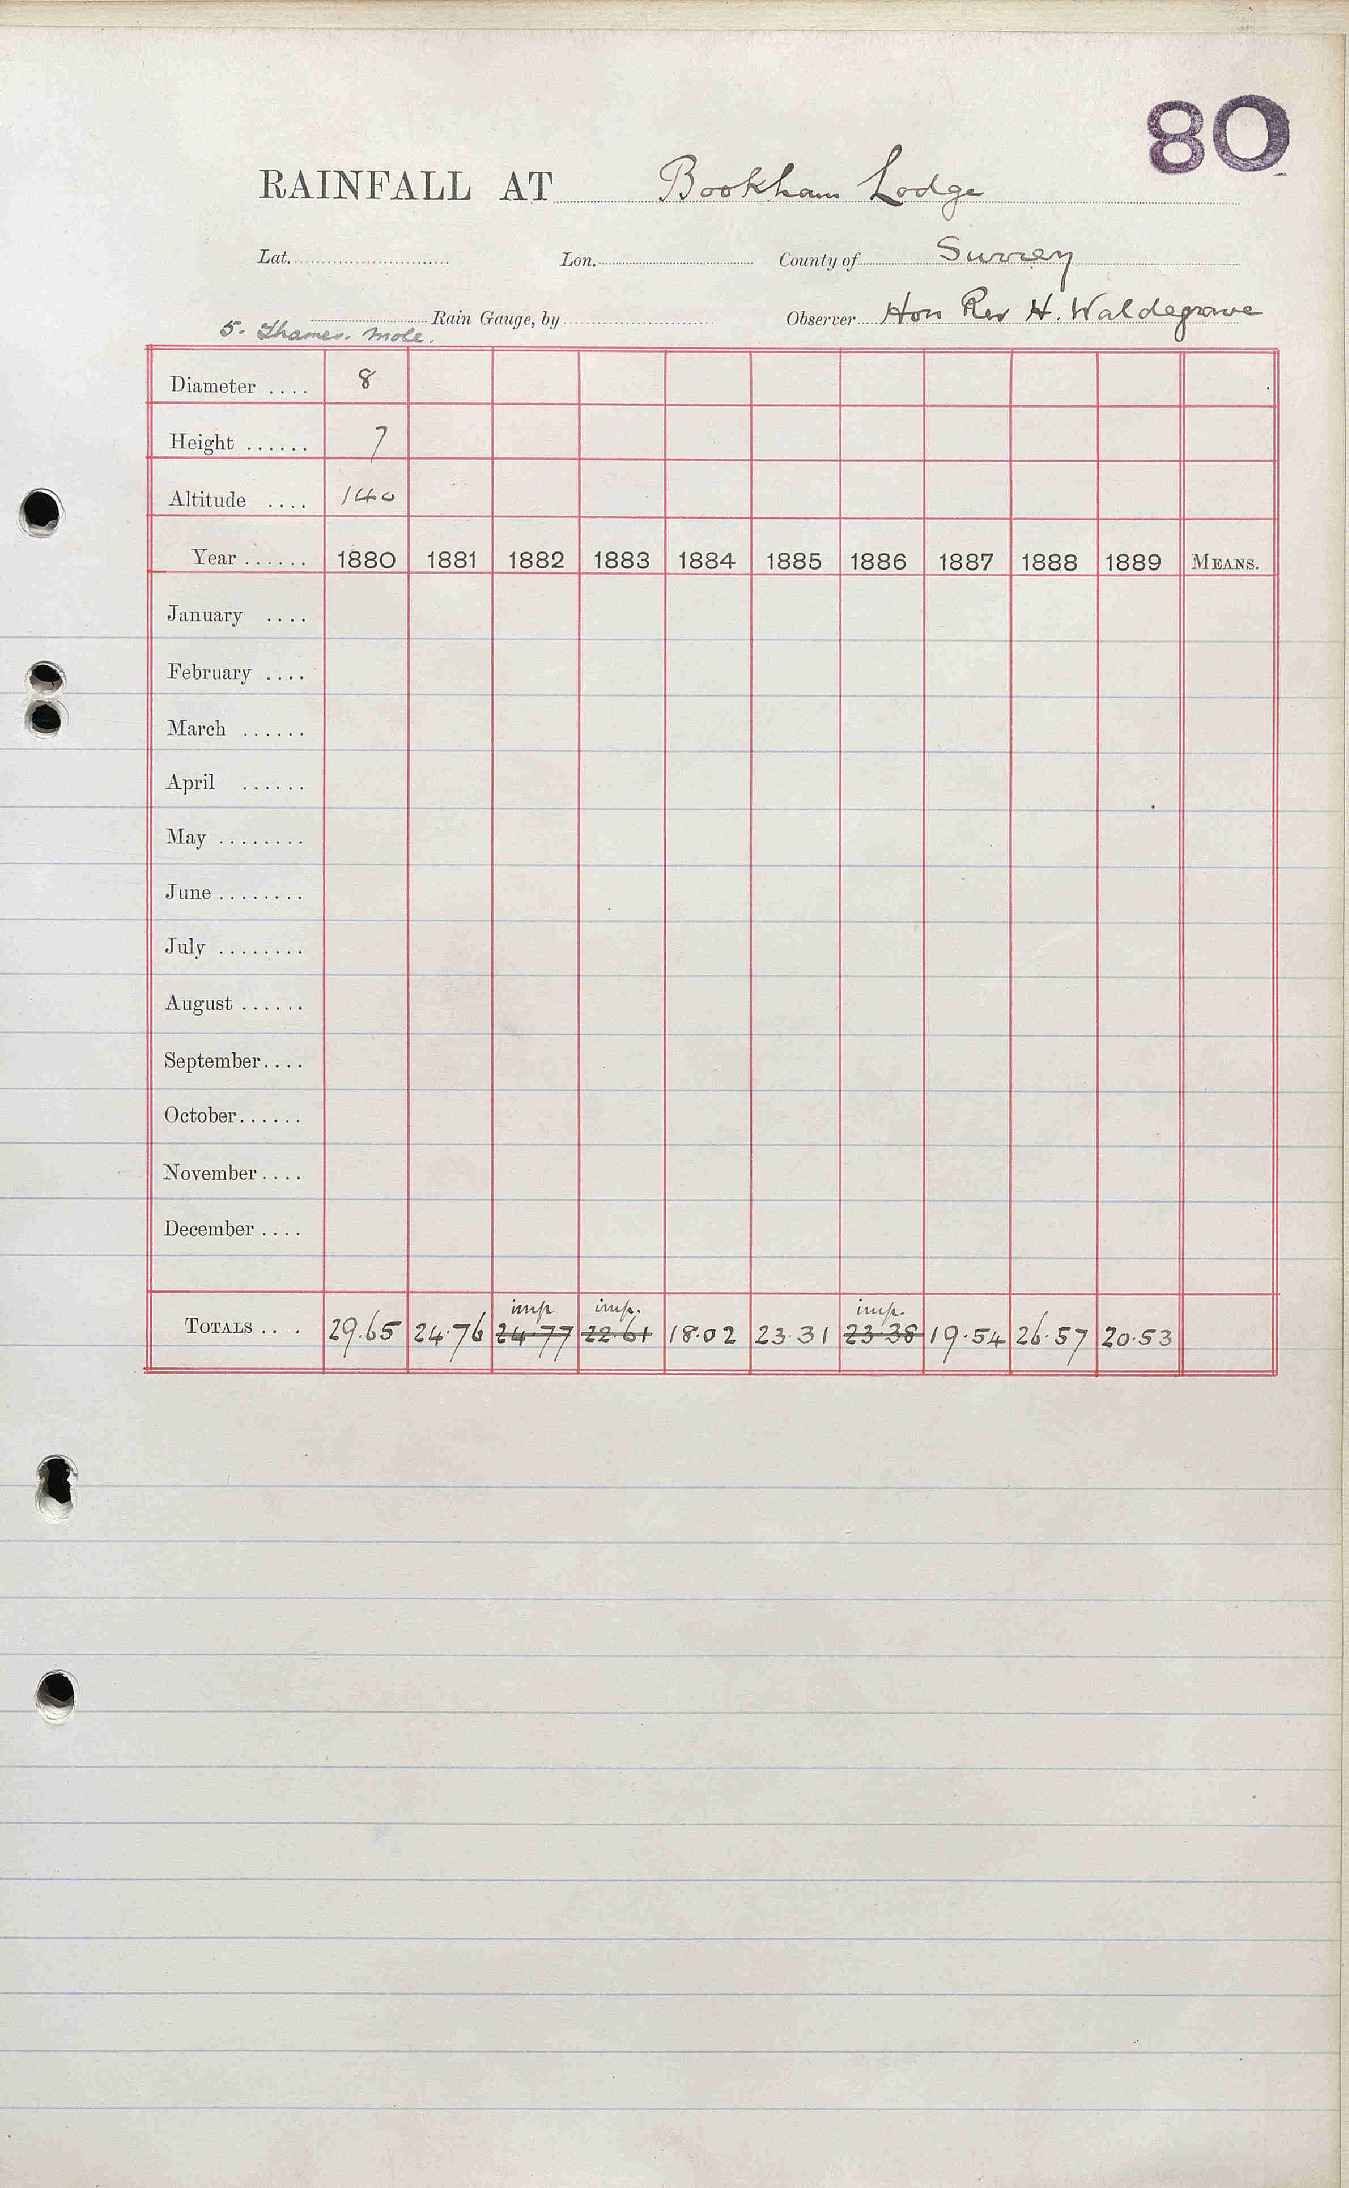 80
RAINFALL AT Bookham Lodge
Lat. Lon. County of Surrey
Rain Gauge, by Observer Hon Rev H. Waldegrave
5. Thames. Mole.
Diameter .... 8
Height ...... 7
Altitude .... 140
Year ...... 1880 1881 1882 1883 1884 1885 1886 1887 1888 1889 MEANS.
January ....
February ....
March ......
April ......
May ........
June ........
July ........
August ......
September ....
October ......
November ....
December ....
imp imp. imp.
TOTALS .... 29.65 24.76 24.77 22.61 18.02 23.31 23.38 19.54 26.57 20.53